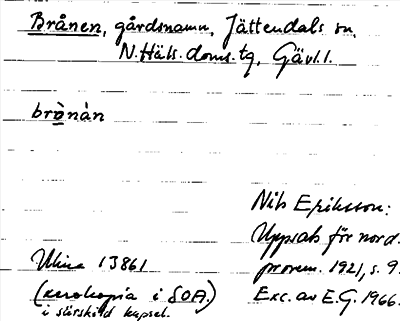 Brånen, gårdsnamn, Jättendals sn,
N. Häls. doms. tg, Gävl. l.
brånån
Nils Eriksson:
Uppsats för nord.
prosem. 1921, s. 9.
Exc. av E.G. 1966.
13861
(xerokopia i SOA.)
i särskild kapsel.